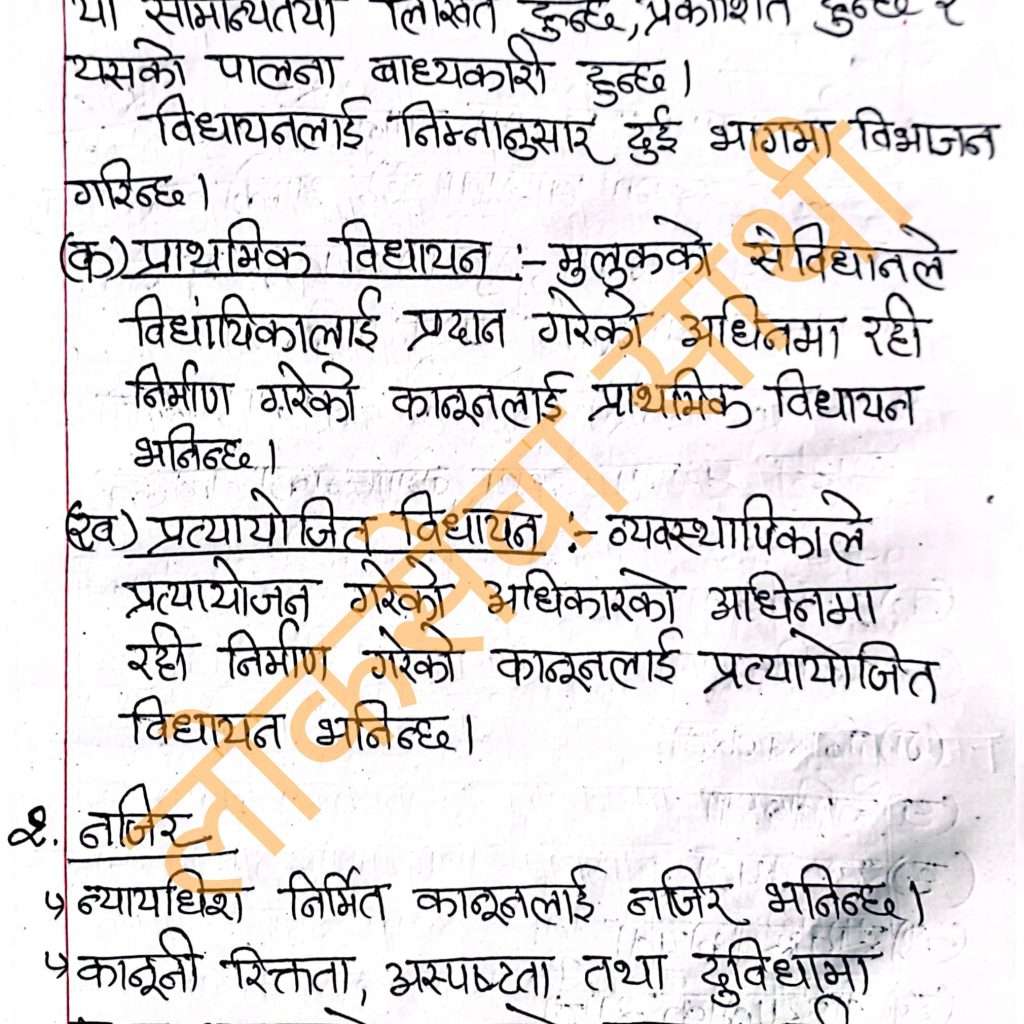 यो सामान्यतया लिखित हुन्छ, प्रकाशित हुन्छ र
यसको पालना बाध्यकारी हुन्छ।
विधायनलाई निम्नानुसार दुई भागमा विभाजन
गरिन्छ।
(क) प्राथमिक विधायन :- मुलुकको संविधानले
विधायिकालाई प्रदान गरेको अधिनमा रही
निर्माण गरेको कानूनलाई प्राथमिक विधायन
भनिन्छ।
(ख) प्रत्यायोजित विधायन :- व्यवस्थापिकाले
प्रत्यायोजन गरेको अधिकारको अधिनमा
रही निर्माण गरेको कानूनलाई प्रत्यायोजित
विधायन भनिन्छ।
२. नजिर
↳ न्यायधिश निर्मित कानूनलाई नजिर भनिन्छ।
↳ कानूनी रिक्तता, अस्पष्टता तथा दुविधामा
लोकसेवा साथी